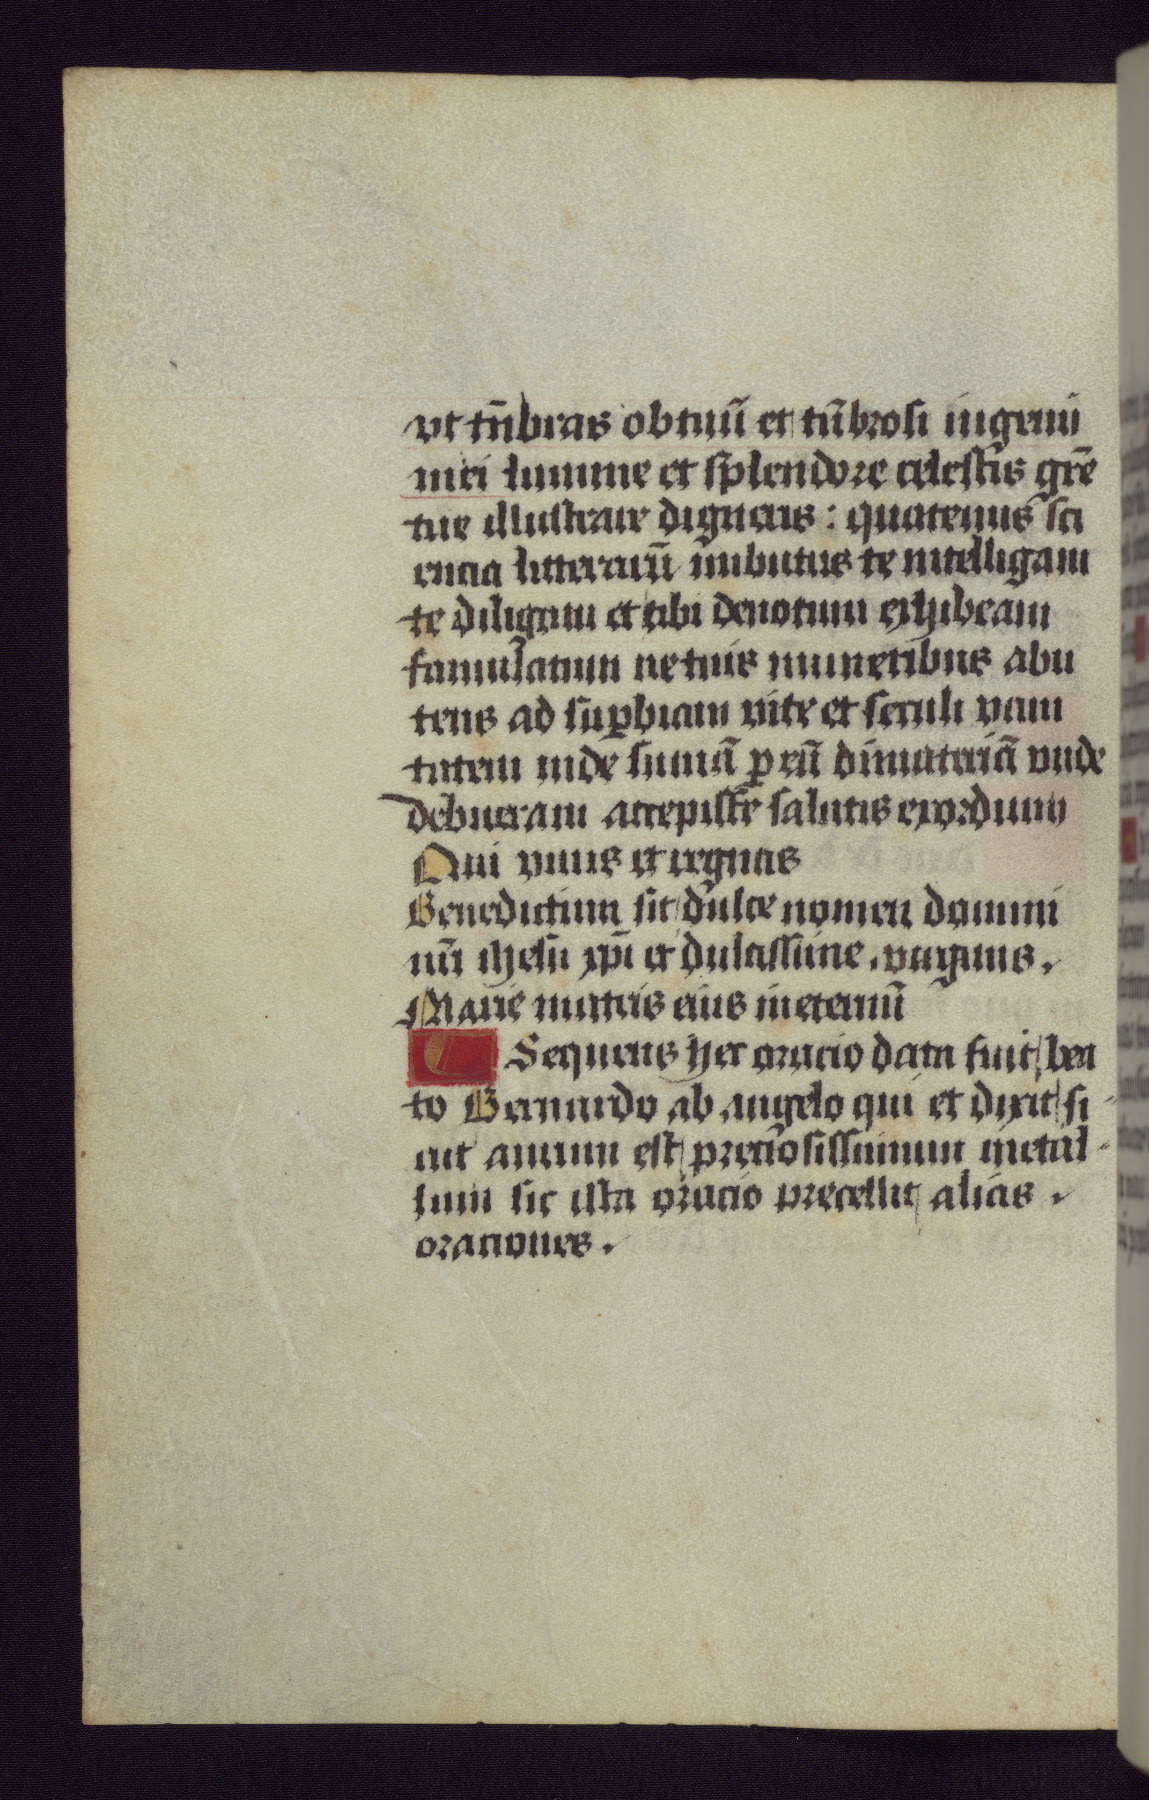 vt tñbras obtusi et tñbrosi ingenii
mei lumine et splendore celestis grẽ
tue illustrare digneris : quatenus sci
encia litterarũ imbutus te intelligam
te diligam et tibi deuotum exhibeam
famulatum ne tuis muneribus abu
tens ad suꝑbiam vite et seculi vani
tatem inde sumã ꝑ eũ materiã vnde
debueram accepisse salutis exordium
Qui viuis et regnas
Benedictum sit dulce nomen domini
nr̃i ihesu xp̃i et dulcissime . virginis .
Marie matris eius in eternũ
¶ Sequens hec oracio data fuit bea
to Bernardo ab angelo qui et dixit si
cut aurum est preciosissimum metal-
lum sic ista oracio precellit alias .
oraciones .